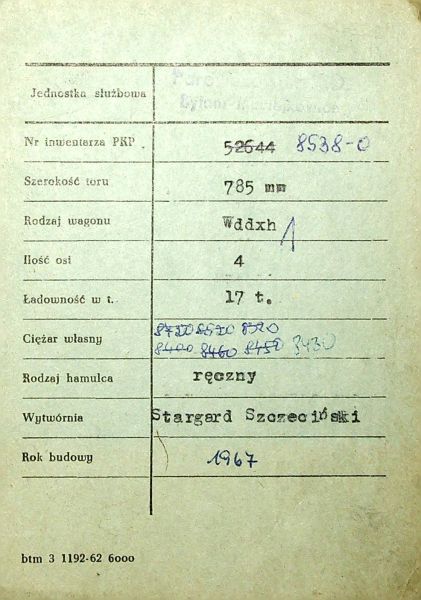 Jednostka służbowa
Nr inwentarza PKP. 52644 8538-0
Szerokość toru 785 mm
Rodzaj wagonu Wddxh 1
Ilość osi 4
Ładowność w t. 17 t.
Ciężar własny
8400 8460 8450 8430
Rodzaj hamulca ręczny
Wytwórnia Stargard Szczeciński
Rok budowy 1967
btm 3 1192-62 6000